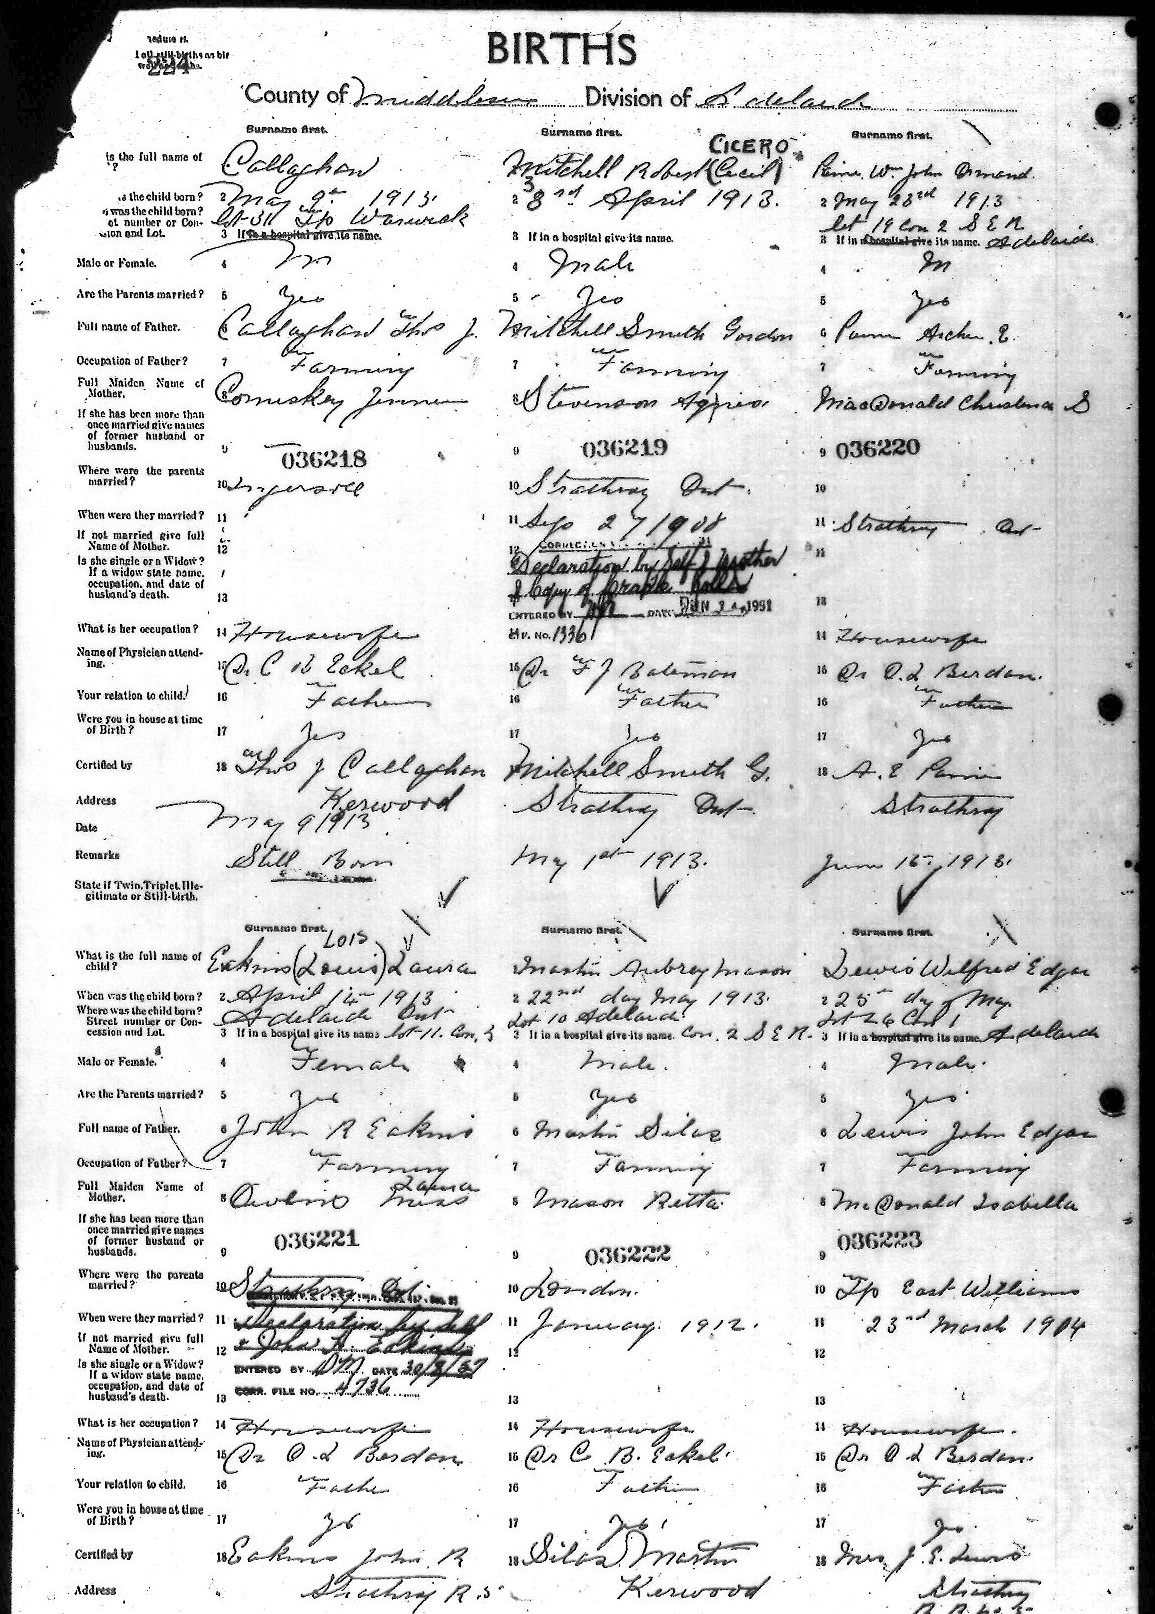 224
BIRTHS
County of Middlesex Division of Adelaide
Surname first. Surname first. Surname first.
CICERO
is the full name of ? Callaghan Mitchell Robert (Cecil) Wm John Ormand
is the child born? 2 May 9th 1913 2 3rd April 1913. 2 May 23rd 1913
was the child born? lot 31 Tp Warwick lot 19 Con 2 S E R
ot number or Con-
sion and Lot. 3 If in a hospital give its name. 3 If in a hospital give its name. 3 If in a hospital give its name. Adelaide
Male or Female. 4 M 4 Male 4 M
Are the Parents married? 5 Yes 5 Yes 5 Yes
Full name of Father. 6 Callaghan Thos J. Mitchell Smith Gordon 6 Archer E.
Occupation of Father? 7 Farming 7 Farming 7 Farming
Full Maiden Name of Mother. 8 Comiskey Jennie 8 Stevenson Agnes. MacDonald Christena S
If she has been more than
once married give names
of former husband or
husbands. 9 036218 9 036219 9 036220
Where were the parents married? 10 Ingersoll 10 Strathroy Ont. 10
When were they married? 11 11 Sep 27 1908 11 Strathroy Ont
If not married give full Name of Mother. 12 12 11
Is she single or a Widow? Declaration by Self & Mother
If a widow state name, & Copy of Cradle Rolls
occupation, and date of
husband's death. 13 ENTERED BY DATE JUN 1951 13
What is her occupation? 14 Housewife F. NO. 1336 14 Housewife
Name of Physician attend-
ing. 15 Dr C B Eckel 15 Dr F J Bateman 15 Dr O. L Berdan.
Your relation to child. 16 Father 16 Father 16 Father
Were you in house at time
of Birth? 17 Yes 17 Yes 17 Yes
Certified by 18 Thos J Callaghan Mitchell Smith G. 18 A. E
Address Kerwood Strathroy Ont. Strathroy
Date May 9 1913
Remarks Still Born May 1st 1913. June 15 1913.
State if Twin, Triplet, Ille-
gitimate or Still-birth.
Surname first. Surname first. Surname first.
LOIS
What is the full name of
child? Eakins (Louis) Laura Martin Aubrey Mason Lewis Wilfred Edgar
When was the child born? 2 April 14th 1913 2 22nd day May 1913. 2 25th day of May
Where was the child born? Adelaide Ont Lot 10 Adelaide Lot 26 Con 1
Street number or Con-
cession and Lot. 3 If in a hospital give its name lot 11. Con, 3 If in a hospital give its name. Con. 2 S E R. 3 If in a hospital give its name. Adelaide
Male or Female. 4 Female 4 Male. 4 Male.
Are the Parents married? 5 Yes 5 Yes 5 Yes
Full name of Father. 6 John R Eakins 6 Martin Silas 6 Lewis John Edgar
Occupation of Father? 7 Farming 7 Farming 7 Farming
Laura
Full Maiden Name of
Mother. 8 Miss 8 Mason Retta 8 McDonald Isabella
If she has been more than
once married give names
of former husband or
husbands. 9 036221 9 036222 9 036223
Where were the parents
married? 10 Strathroy Ont. 10 London. 10 Tp East Williams
When were they married? 11 Declaration by Self 11 January 1912. 11 23rd March 1904
If not married give full
Name of Mother. 12 & John R. Eakins 12 12
Is she single or a Widow? ENTERED BY DM DATE 30/8/57
If a widow state name,
occupation, and date of
husband's death. 13 CORR. FILE NO. 4736 13 13
What is her occupation? 14 Housewife 14 Housewife 14 Housewife.
Name of Physician attend-
ing. 15 Dr O. L Berdan 15 Dr C B. Eckel. 15 Dr O L Berdan.
Your relation to child. 16 Father 16 Father 16 Father
Were you in house at time
of Birth? 17 Yes 17 Yes 17 Yes
Certified by 18 Eakins John R 18 Silas Martin 18 Mrs J. E. Lewis
Address Strathroy R. Kerwood Strathroy